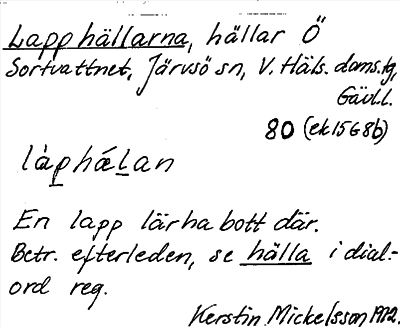 Lapphällarna, hällar Ö
Sortvattnet, Järvsö sn, V. Häls. doms.tg,
Gävl.l.
80 (ek 15G8b)
làp̲hǽl̲an
En lapp lär ha bott där.
Betr. efterleden, se hälla i dial.-
ord reg.
Kerstin Mickelsson 1972.